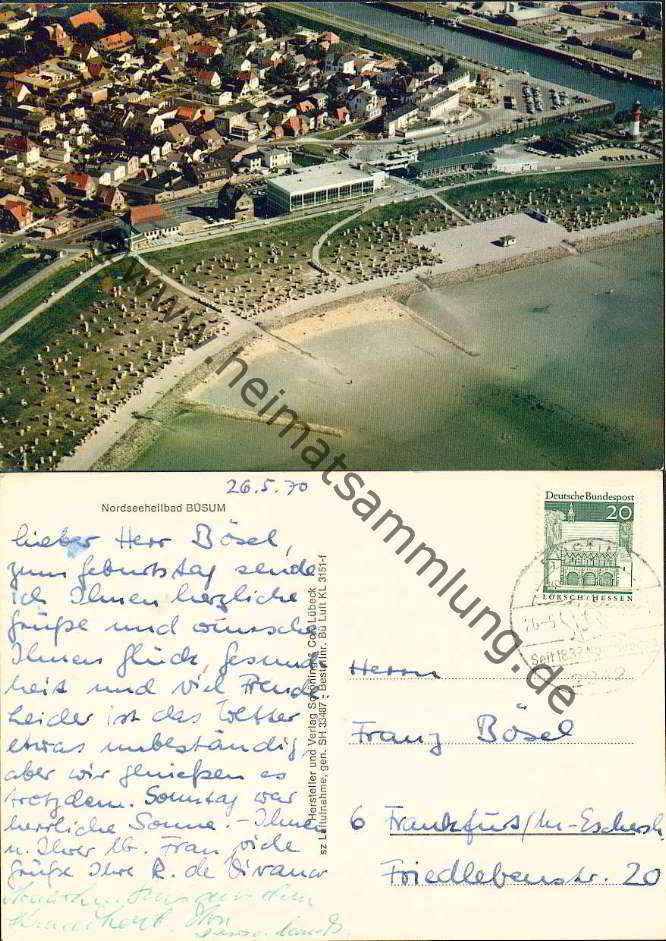 www.heimatsammlung.de
26.5.70
Nordseeheilbad BÜSUM
lieber Herr Bösel,
zum Geburtstag sende
ich Ihnen herzliche
Grüße und wünsche
Ihnen Glück, Gesund-
heit und viel Freude
Leider ist das Wetter
etwas unbeständig,
aber wir genießen es
trotzdem. Sonntag war
herrliche Sonne. – Ihnen
u. Ihrer lb. Frau viele
Grüße Ihre R. de
Hersteller und Verlag Schöning & Co · Lübeck
sz Luftaufnahme, gen. SH 33487 · Bestell-Nr. Bü Luft KL 3151-f
Deutsche Bundespost
20
LORSCH/HESSEN
26-5
Seit 1837
2242
Herrn
Franz Bösel
6 Frankfurt/M-Eschersh.
Friedlebenstr. 20